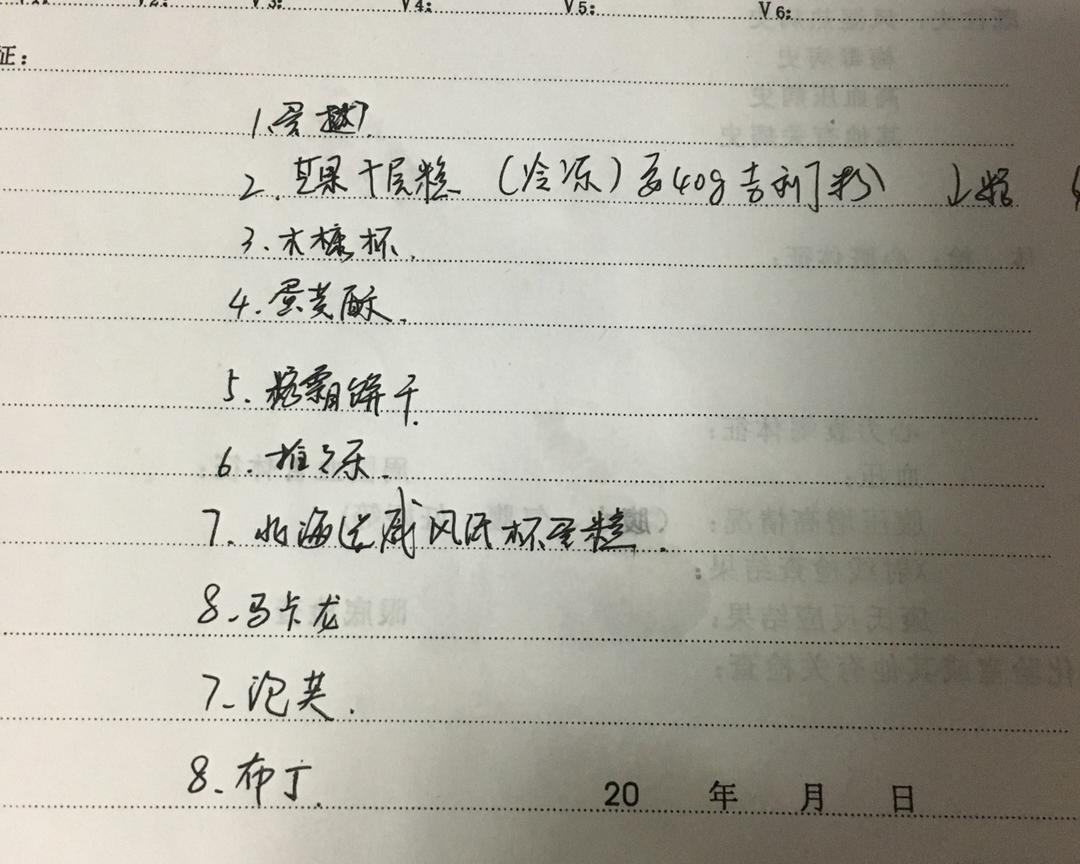 V2: V3: V4: V5: V6:
证:
1.蛋挞
2.芒果千层糕 (冷冻) 要40g吉利丁粉
3.木糠杯.
4.蛋黄酥.
5.糖霜饼干.
6.推之乐.
7.北海道戚风纸杯蛋糕.
8.马卡龙
7.泡芙.
8.布丁.
20 年 月 日